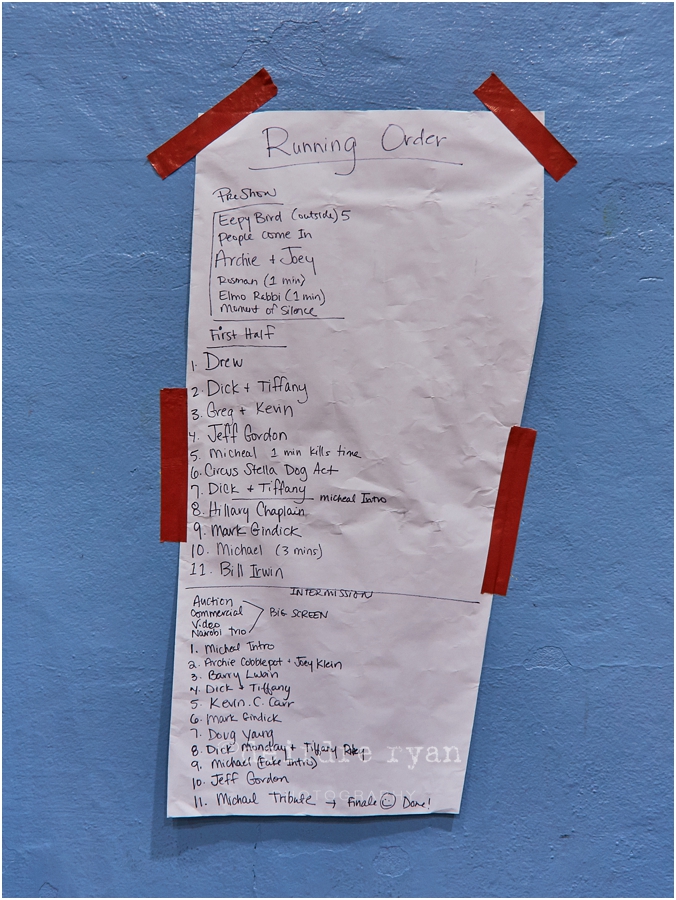 Running Order
PreShow
Eepy Bird (outside) 5
people come In
Archie + Joey
Rosman (1 min)
Elmo Rabbi (1 min)
Moment of Silence
First Half
1. Drew
2. Dick + Tiffany
3. Greg + Kevin
4. Jeff Gordon
5. Micheal 1 min kills time
6. Circus Stella Dog Act
7. Dick + Tiffany micheal Intro
8. Hillary Chaplain
9. Mark Gindick
10. Michael (3 mins)
11. Bill Irwin
INTERMISSION
Auction
Commercial
Video
Nairobi trio
BIG SCREEN
1. Micheal Intro
2. Archie Cobblepot + Joey Klein
3. Barry Lubin
4. Dick + Tiffany
5. Kevin. C. Carr
6. Mark Gindick
7. Doug Young
8. Dick Monday + Tiffany Riley
9. Michael (Fake Intro)
10. Jeff Gordon
11. Michael Tribute → Finale ☺ Done!
deirdre ryan
PHOTOGRAPHY